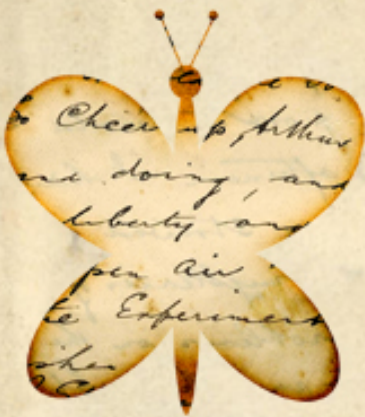 Cheer up Arthur
doing, and
liberty and
pen air
te Experiment
shes